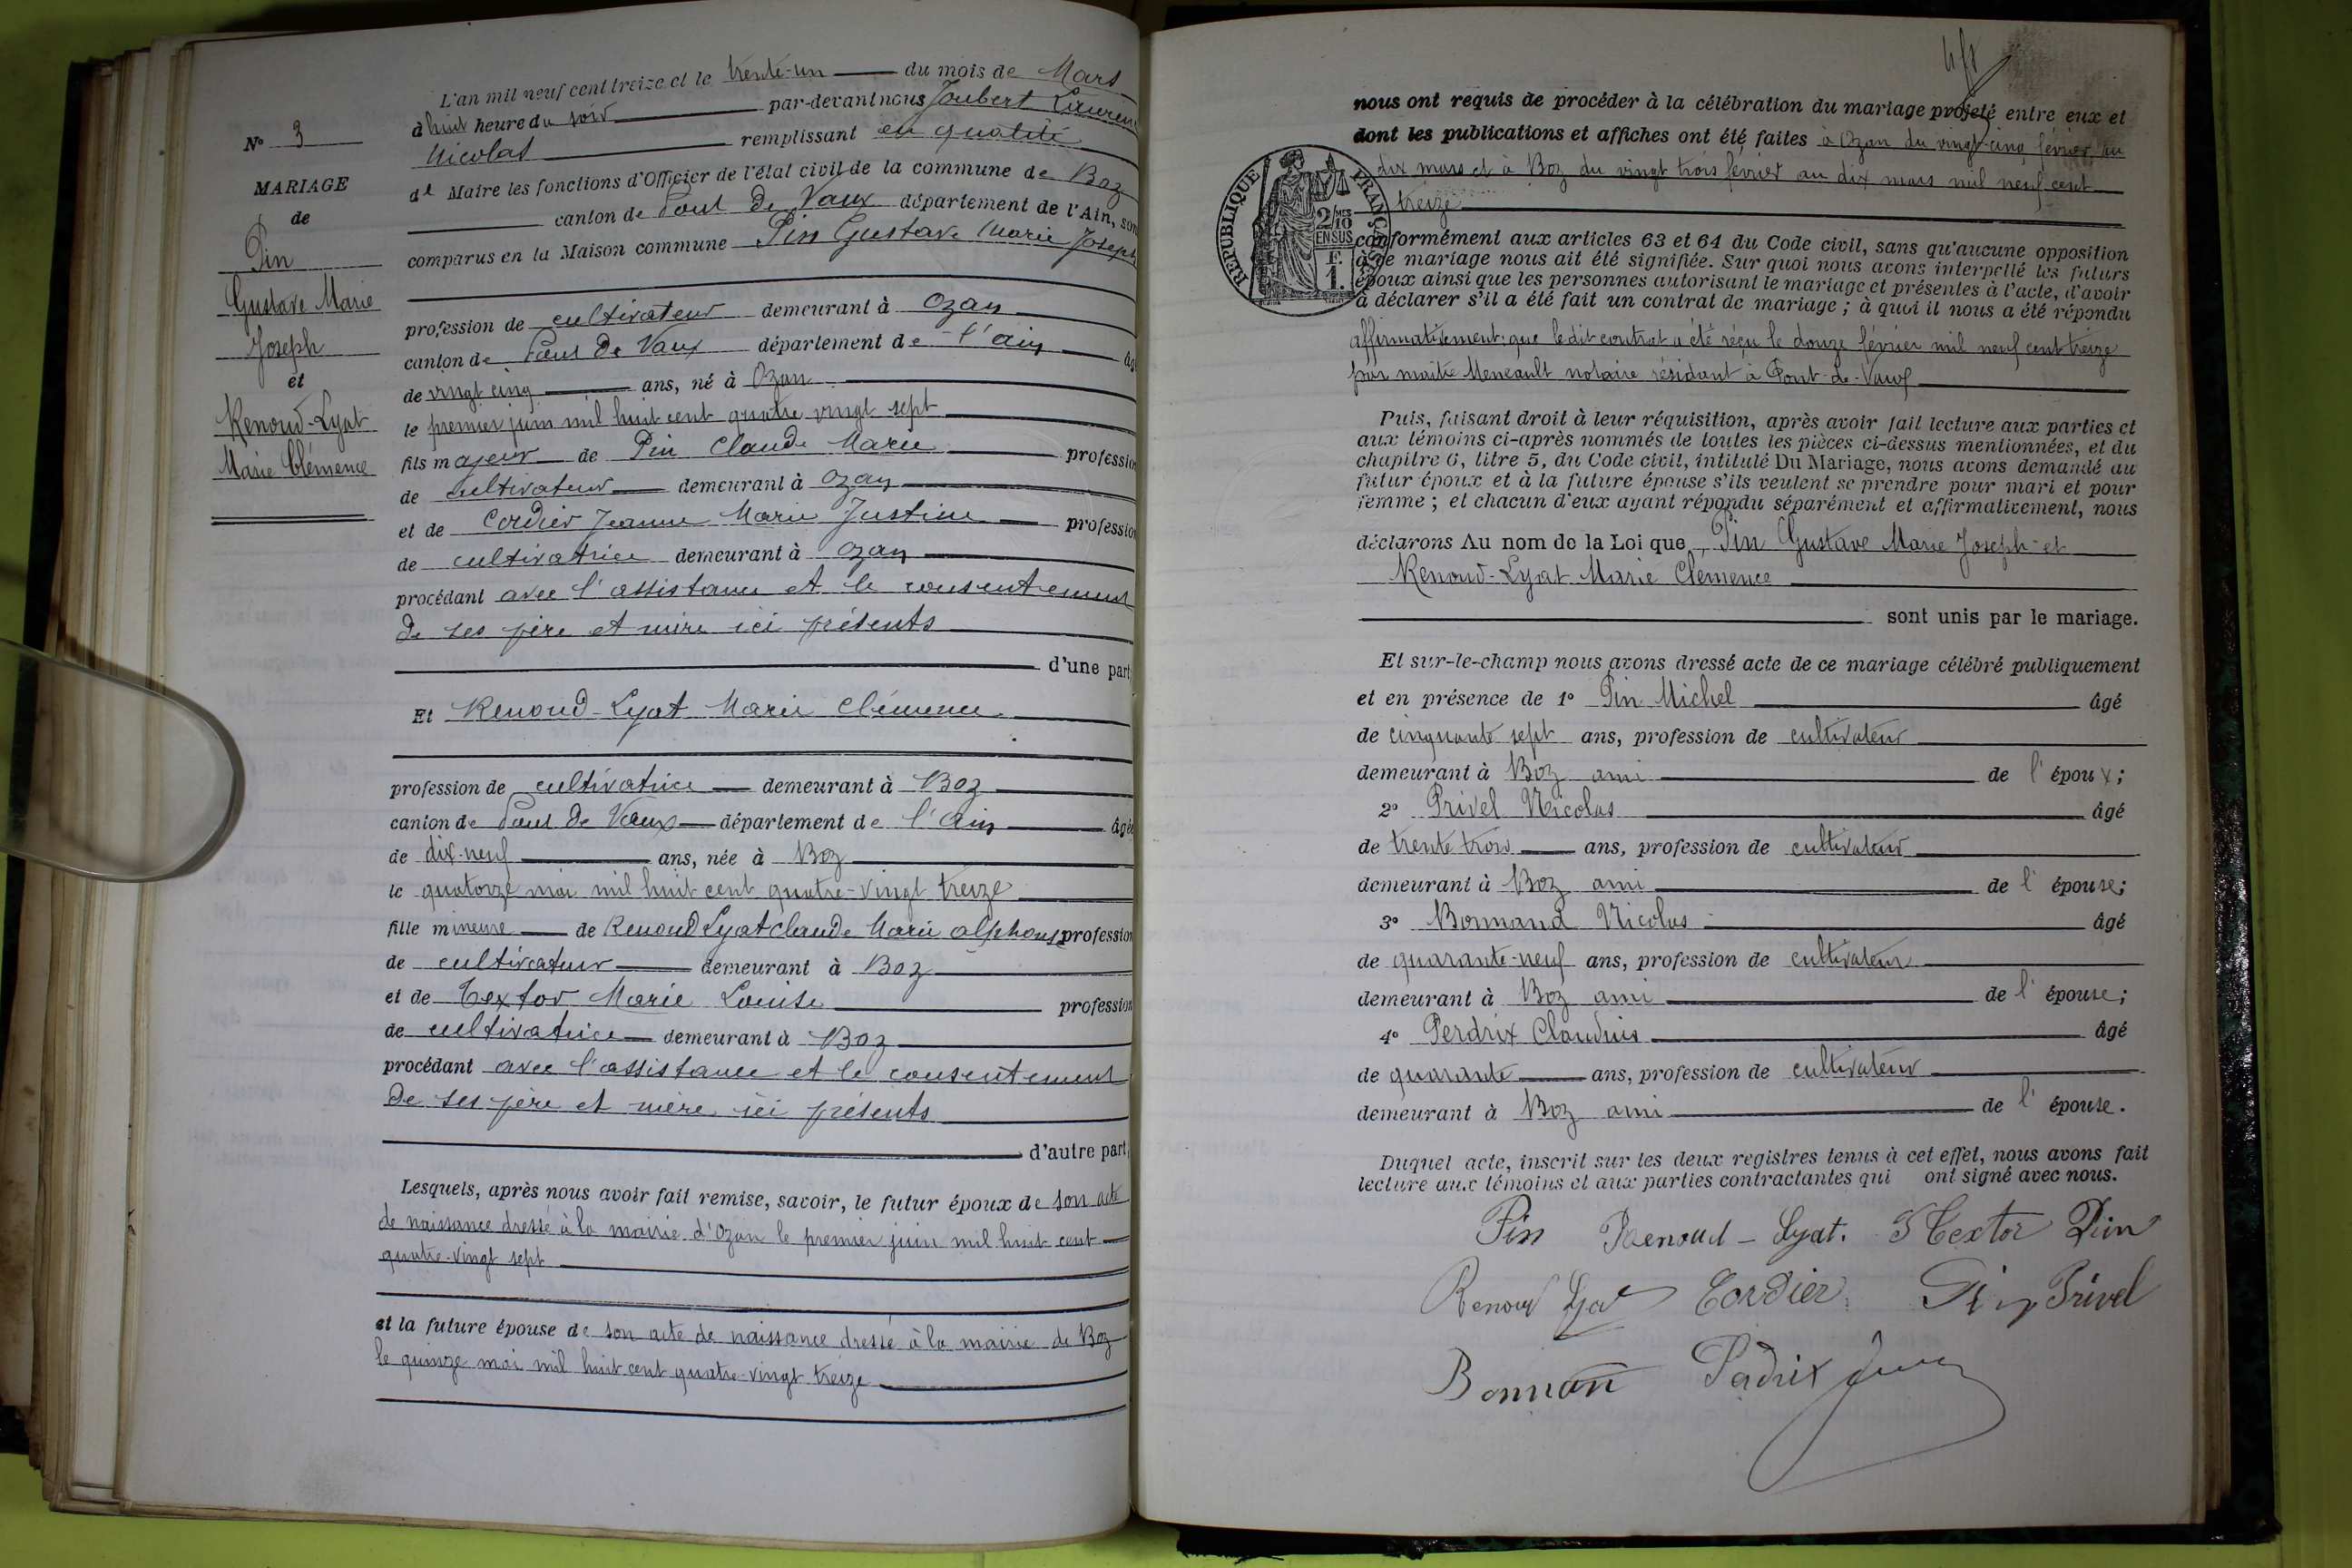 L'an mil neuf cent treize et le trente-un du mois de Mars
à huit heure du soir par-devant nous Joubert Laurent
Nicolas remplissant en qualité
de Maire les fonctions d'Officier de l'état civil de la commune de Boz
canton de Pont de Vaux département de l'Ain, son
comparus en la Maison commune Pin Gustave Marie Joseph
N° 3
MARIAGE
de
Pin
Gustave Marie
Joseph
et
Renoud-Lyat
Marie Clémence
profession de cultivateur demeurant à Ozan
canton de Pont de Vaux département de l'ain âg
de vingt cinq ans, né à Ozan
le premier juin mil huit cent quatre vingt sept
fils majeur de Pin Claude Marie profession
de cultivateur demeurant à Ozan
et de Cordier Jeanne Marie Justine profession
de cultivatrice demeurant à Ozan
procédant avec l'assistance et le consentement
de ses père et mère ici présents
d'une part
Et Renoud-Lyat Marie Clémence
profession de cultivatrice demeurant à Boz
canton de Pont de Vaux département de l'ain âgée
de dix-neuf ans, née à Boz
le quatorze mai mil huit cent quatre-vingt treize
fille mineure de Renoud Lyat Claude Marie alphonse profession
de cultivateur demeurant à Boz
et de Textor Marie Louise profession
de cultivatrice demeurant à Boz
procédant avec l'assistance et le consentement
de ses père et mère ici présents
d'autre part,
Lesquels, après nous avoir fait remise, savoir, le futur époux de son acte
de naissance dressé à la mairie d'Ozan le premier juin mil huit cent
quatre-vingt sept
et la future épouse de son acte de naissance dressé à la mairie de Boz
le quinze mai mil huit cent quatre-vingt treize
nous ont requis de procéder à la célébration du mariage projeté entre eux et
dont les publications et affiches ont été faites à Ozan du vingt-cinq février au
dix mars et à Boz du vingt trois février au dix mars mil neuf cent
treize
RÉPUBLIQUE FRANÇAISE
2/10 MES
EN SUS
F.
1.
conformément aux articles 63 et 64 du Code civil, sans qu'aucune opposition
à ce mariage nous ait été signifiée. Sur quoi nous avons interpellé les futurs
époux ainsi que les personnes autorisant le mariage et présentes à l'acte, d'avoir
à déclarer s'il a été fait un contrat de mariage ; à quoi il nous a été répondu
affirmativement; que le dit contrat a été reçu le douze février mil neuf cent treize
par maître Meneault notaire résidant à Pont-de-Vaux
Puis, faisant droit à leur réquisition, après avoir fait lecture aux parties et
aux témoins ci-après nommés de toutes les pièces ci-dessus mentionnées, et du
chapitre 6, titre 5, du Code civil, intitulé Du Mariage, nous avons demandé au
futur époux et à la future épouse s'ils veulent se prendre pour mari et pour
femme ; et chacun d'eux ayant répondu séparément et affirmativement, nous
déclarons Au nom de la Loi que Pin Gustave Marie Joseph et
Renoud-Lyat Marie Clémence
sont unis par le mariage.
Et sur-le-champ nous avons dressé acte de ce mariage célébré publiquement
et en présence de 1° Pin Michel âgé
de cinquante sept ans, profession de cultivateur
demeurant à Boz ami de l'époux;
2° Privel Nicolas âgé
de trente trois ans, profession de cultivateur
demeurant à Boz ami de l'épouse;
3° Bonnand Nicolas âgé
de quarante-neuf ans, profession de cultivateur
demeurant à Boz ami de l'épouse;
4° Perdrix Claudius âgé
de quarante ans, profession de cultivateur
demeurant à Boz ami de l'épouse.
Duquel acte, inscrit sur les deux registres tenus à cet effet, nous avons fait
lecture aux témoins et aux parties contractantes qui ont signé avec nous.
Pin Renoud-Lyat. Textor Pin
Renoud Lyat Cordier Pin Privel
Bonnan Perdrix